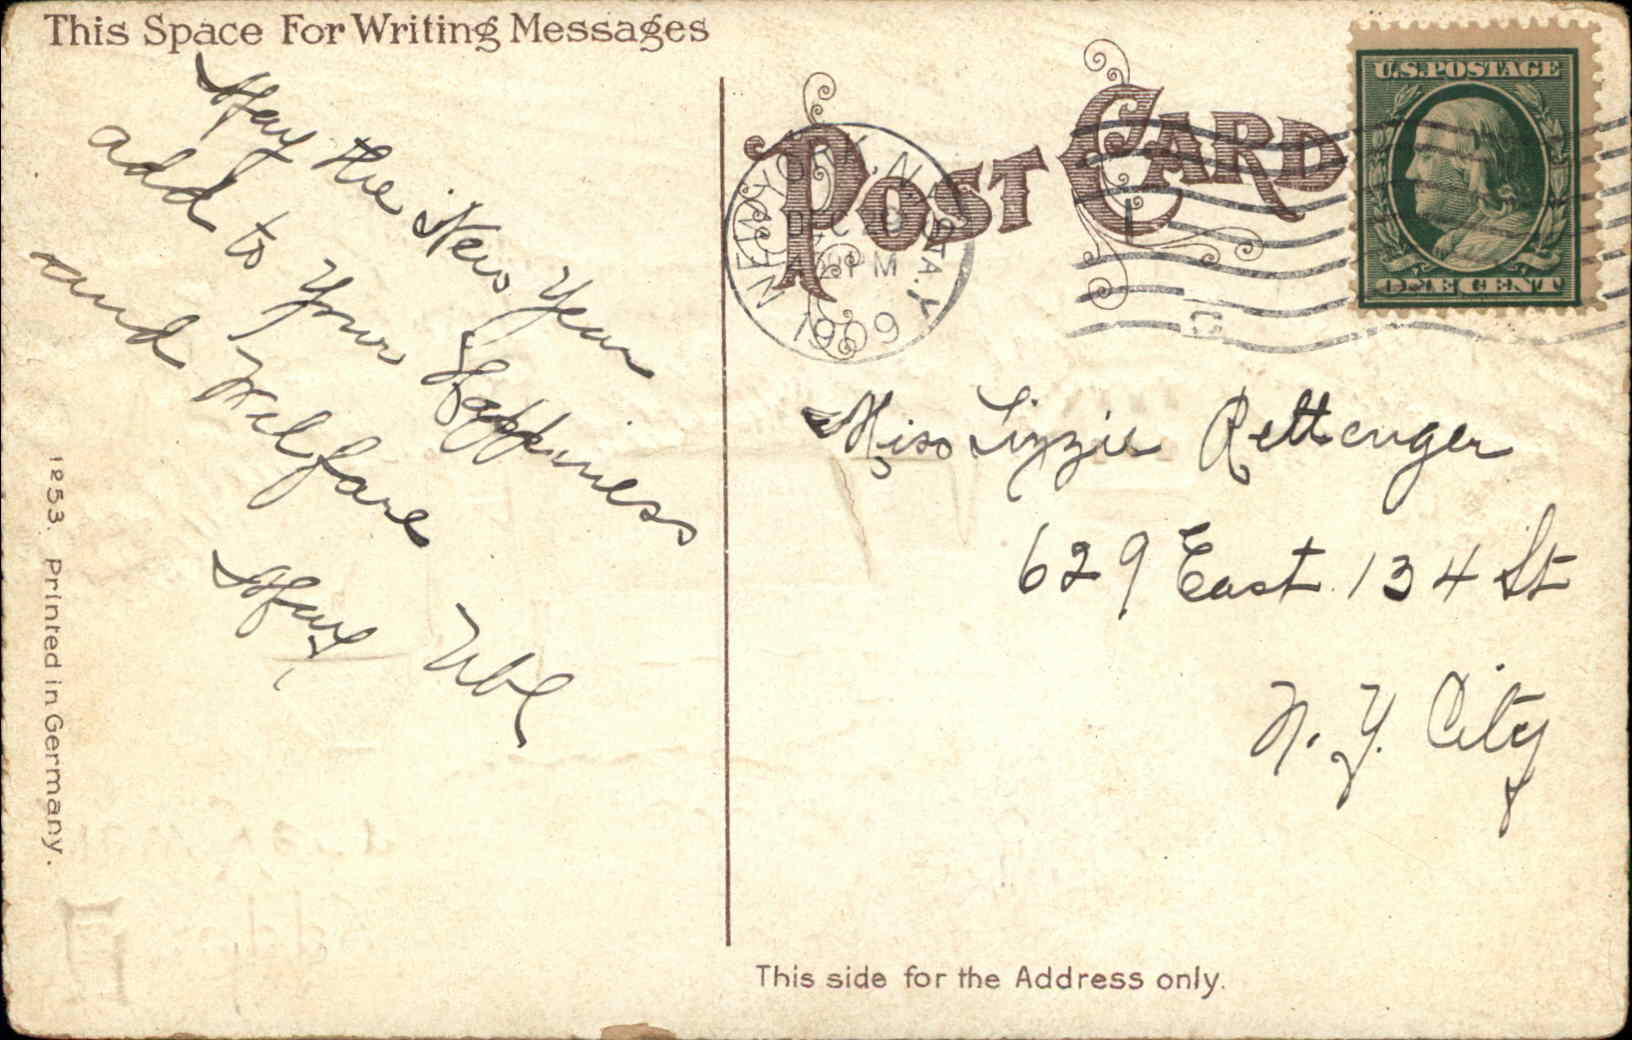 This Space For Writing Messages
May the New Year
add to Your Happiness
and Welfare
May Uhl
1253. Printed in Germany.
POST CARD
NEW YORK, N.Y. STA. Y
DEC
PM
1909
1
U.S. POSTAGE
ONE CENT
Miss Lizzie Rettenger
629 East 134 St
N. Y. City
This side for the Address only.